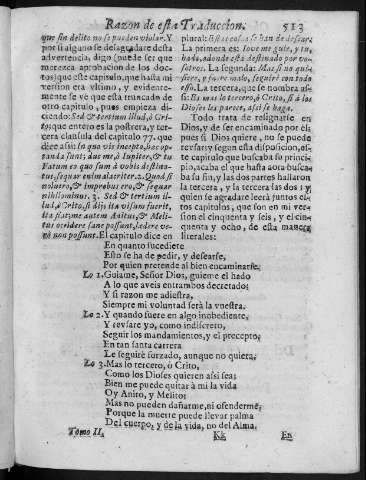 Razon de esta Traduccion. 513
que sin delito no se pueden violar. Y
por si alguno se desagradare desta
advertencia, digo (puede ser que
merezca aprobacion de los doct-
os) que este capitulo, que hasta mi
version era vltimo, y evidente-
mente se vè que està truncado de
otro capitulo, pues empieza di-
ciendo: Sed & tertium illud, ò Cri-
to: es que entero es la postrera, y ter-
cera clausula del capitulo 77. que
dice assi: In qua vis incepto, hæc op-
tanda sunt: duc me, ò Iupiter, & tu
Fatum eo quo sum à vobis destina-
tus, sequar enim alacriter. 2. Quod si
noluero, & improbus ero, & sequar
nihilominus. 3. Sed & tertium il-
lud, ò Crito, si dijs ita visum fuerit,
ita fiat, me autem Anitus, & Meli-
tus occidere sane possunt, lædere ve-
rò non possunt. El capitulo dice en
plural: Estas cosas se han de desear.
La primera es: Iove me guie, y tu,
hado, adonde esta destinado por vo-
sotros. La segunda: Mas si no qui-
siere, y fuere malo, seguirè con todo
esso. La tercera, que se nombra as-
si: Es mas lo tercero, ò Crito, si à los
Dioses les parece, assi se haga.
Todo trata de resignarse en
Dios, y de ser encaminado por èl:
pues si Dios quiere, no se puede
revsar; y segun esta disposicion, es-
te capitulo que buscaba su princi-
pio, acaba el que hasta aora busca-
ba su fin, y las dos partes hallaron
la tercera, y la tercera las dos: y
quien se agradare leerà juntos es-
tos capitulos, que son en mi ver-
sion el cinquenta y seis, y el cinq-
uenta y ocho, de esta manera
literales:
En quanto sucediere
Esto se ha de pedir, y desearse,
Por quien pretende al bien encaminarse.
Lo 1. Guiame, Señor Dios, guieme el hado
A lo que aveis entrambos decretado;
Y si razon me adiestra,
Siempre mi voluntad serà la vuestra.
Lo 2. Y quando fuere en algo inobediente,
Y revsare yo, como indiscreto,
Seguir los mandamientos, y el precepto,
En tan santa carrera
Le seguirè forzado, aunque no quiera.
Lo 3. Mas lo tercero, ò Crito,
Como los Dioses quieren assi sea;
Bien me puede quitar à mi la vida
Oy Anito, y Melito;
Mas no pueden dañarme, ni ofenderme,
Porque la muerte puede llevar palma
Del cuerpo, y de la vida, no del Alma.
Tomo II. Kk En